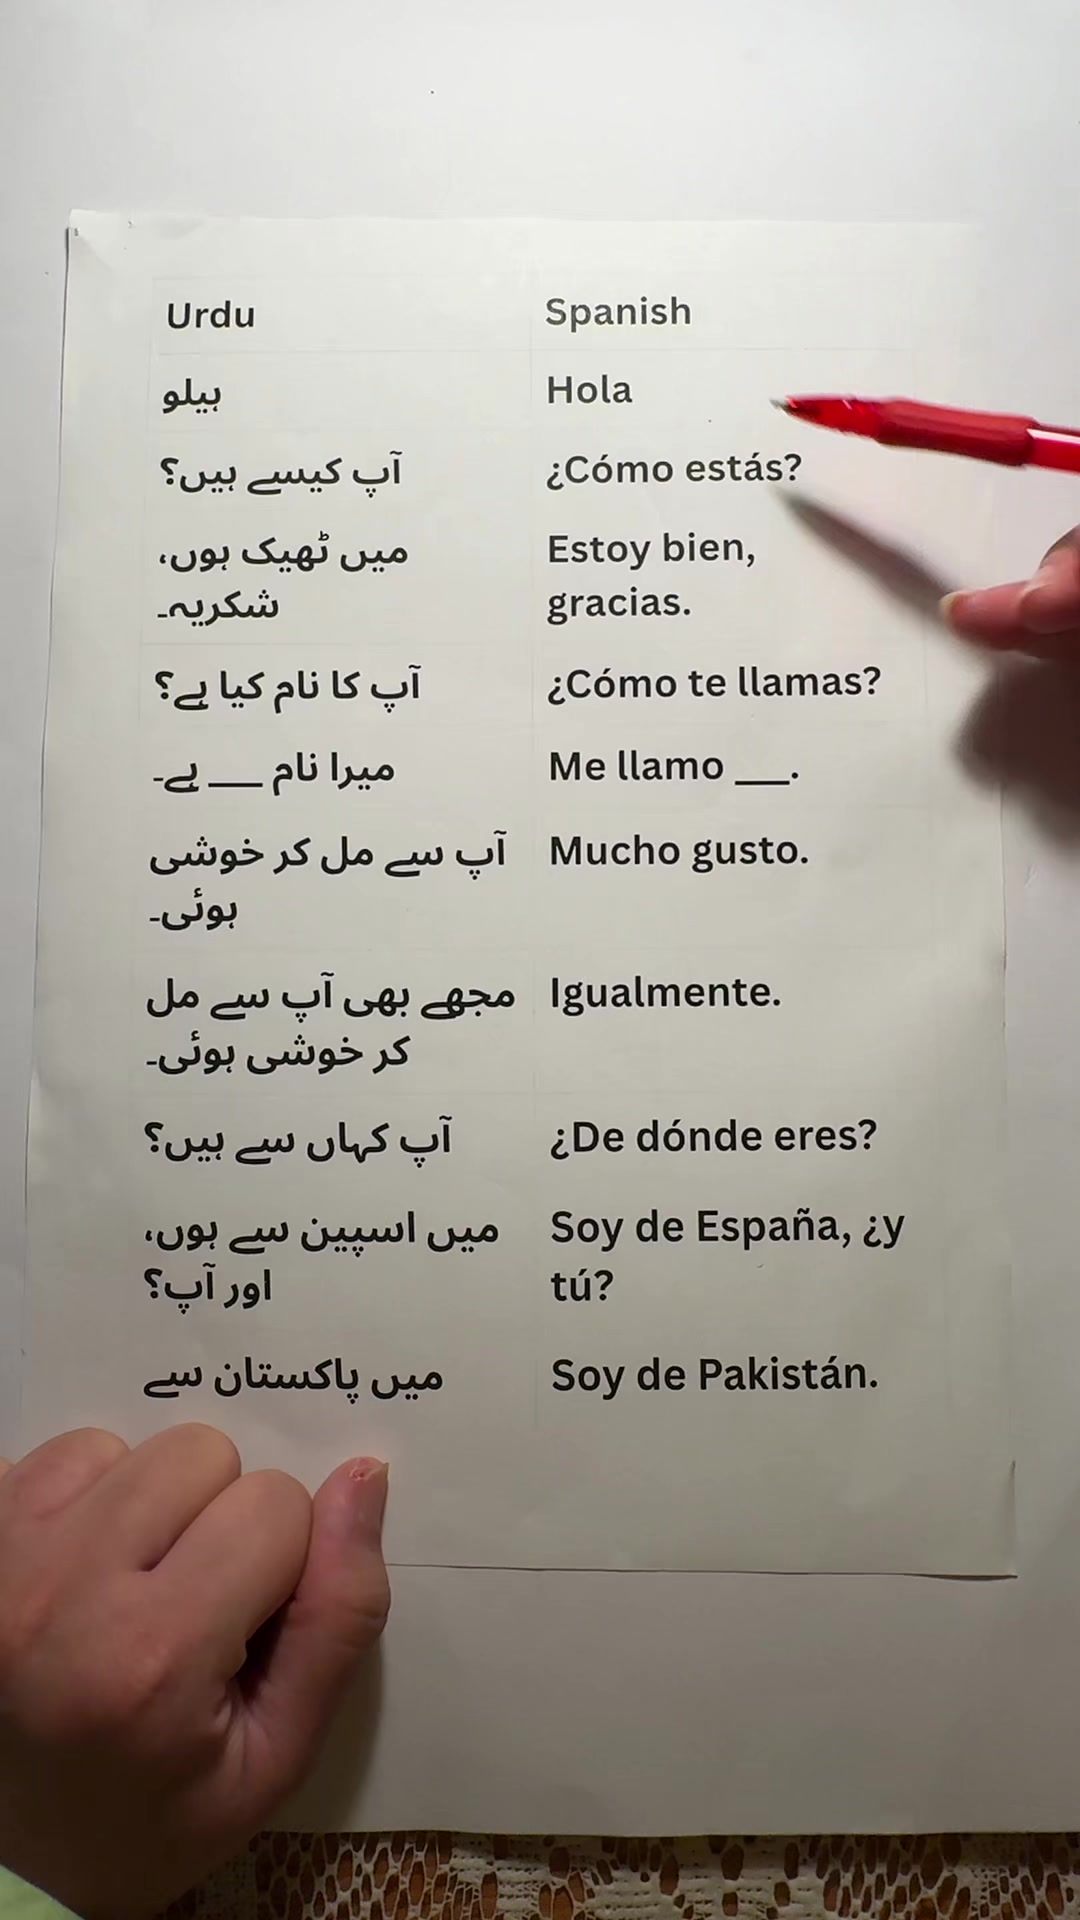 Urdu
Spanish
ہیلو
Hola
آپ کیسے ہیں؟
¿Cómo estás?
میں ٹھیک ہوں،
شکریہ۔
Estoy bien,
gracias.
آپ کا نام کیا ہے؟
¿Cómo te llamas?
میرا نام ___ ہے۔
Me llamo ___.
آپ سے مل کر خوشی
ہوئی۔
Mucho gusto.
مجھے بھی آپ سے مل
کر خوشی ہوئی۔
Igualmente.
آپ کہاں سے ہیں؟
¿De dónde eres?
میں اسپین سے ہوں،
اور آپ؟
Soy de España, ¿y
tú?
میں پاکستان سے
Soy de Pakistán.